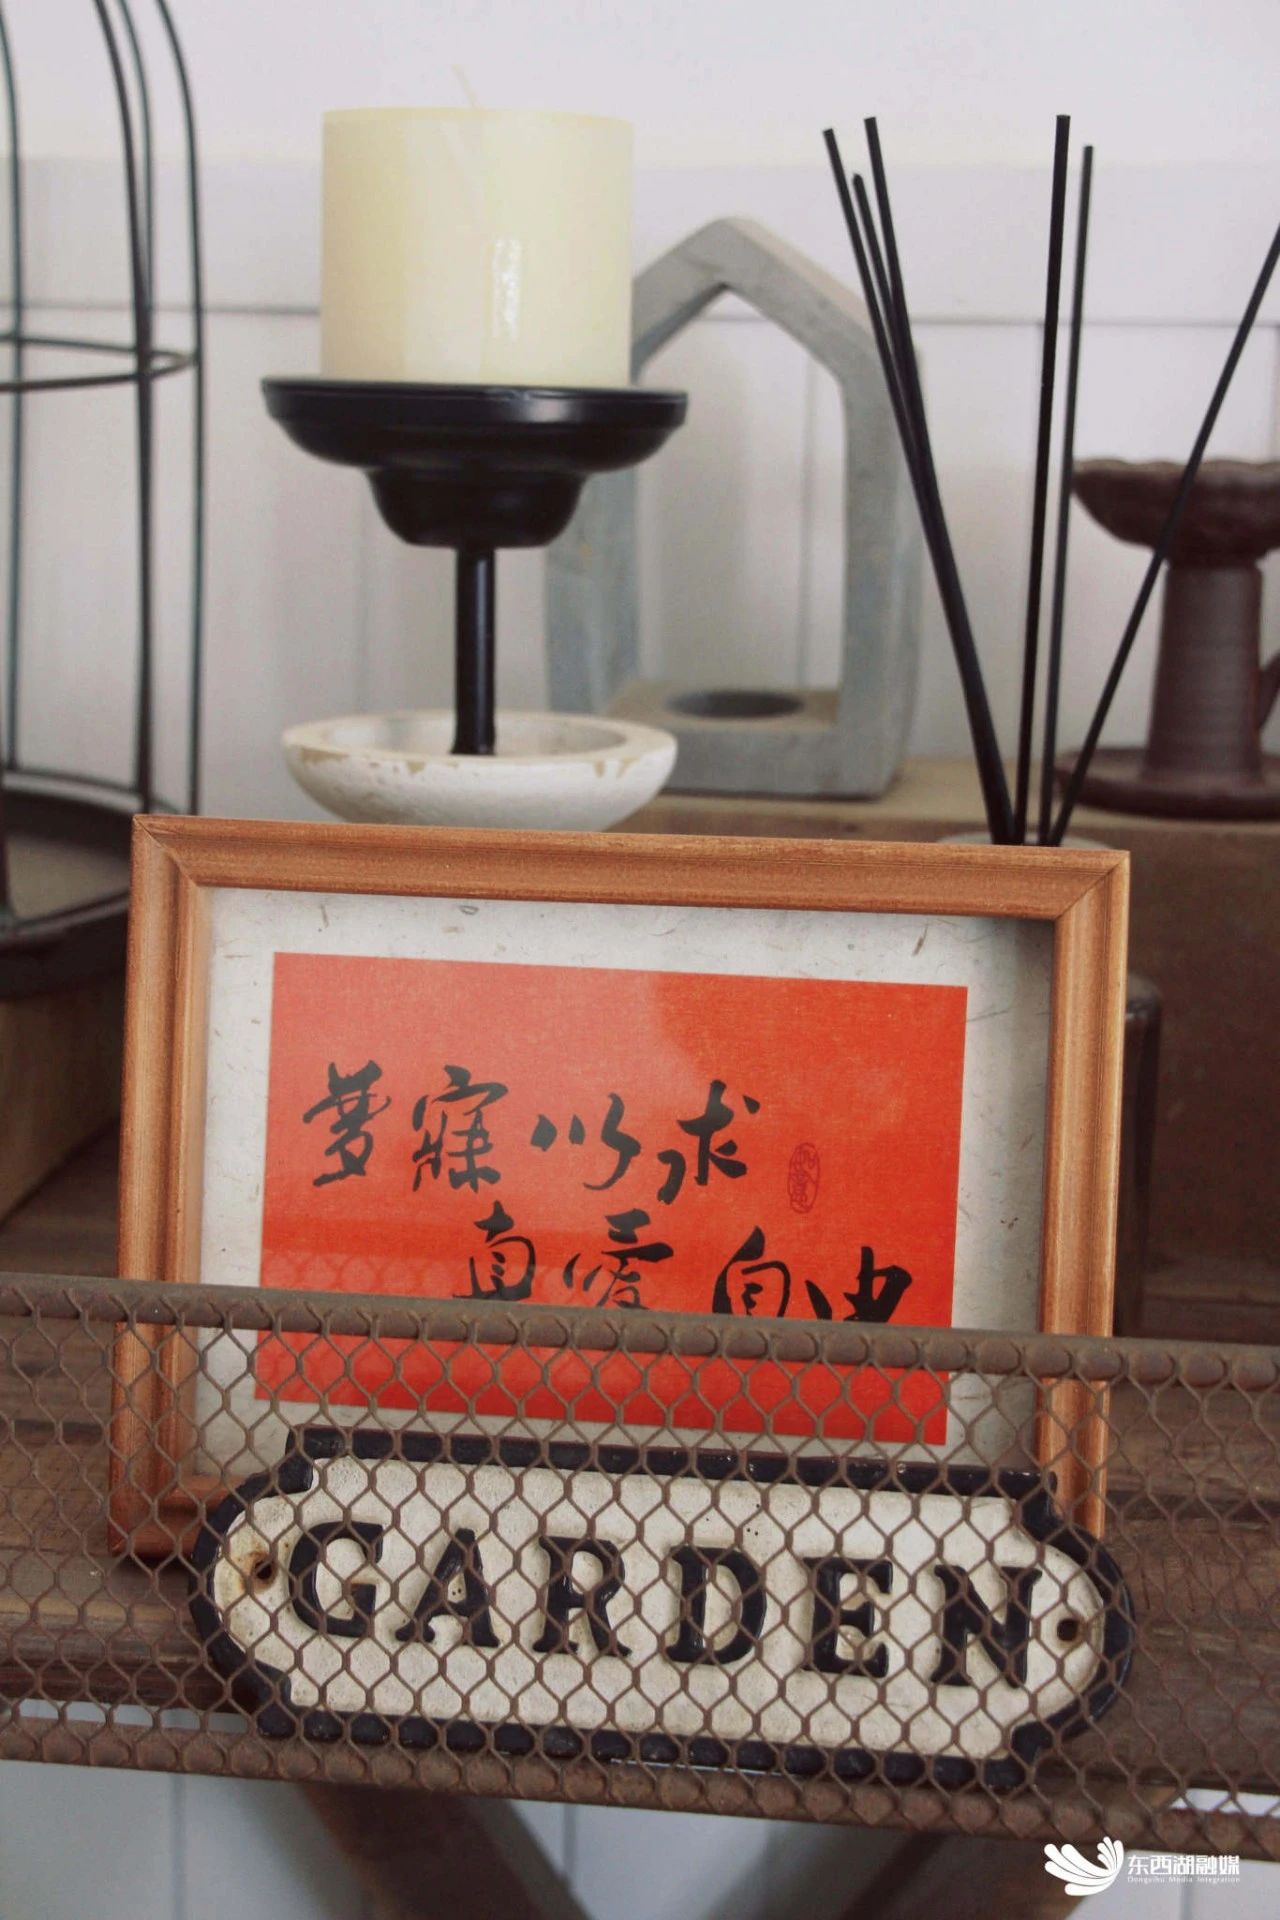 梦寐以求
真爱自由
GARDEN
东西湖融媒
Dongxihu Media Integration